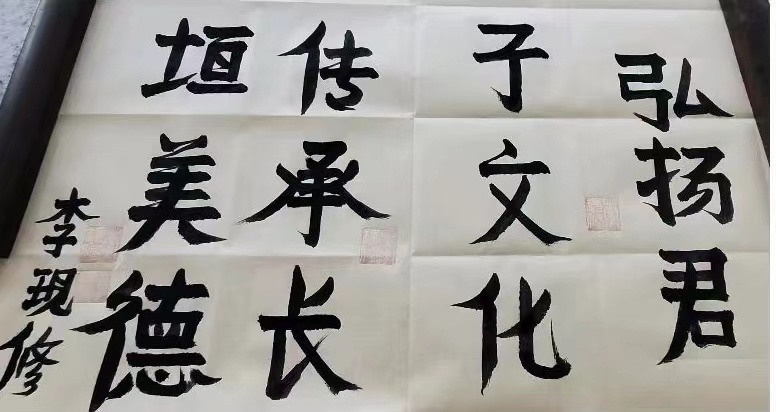 弘扬君
子文化
传承长
垣美德
李现修